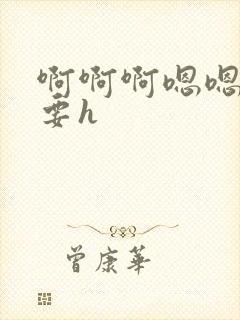 啊啊啊嗯嗯
要h
曾康華